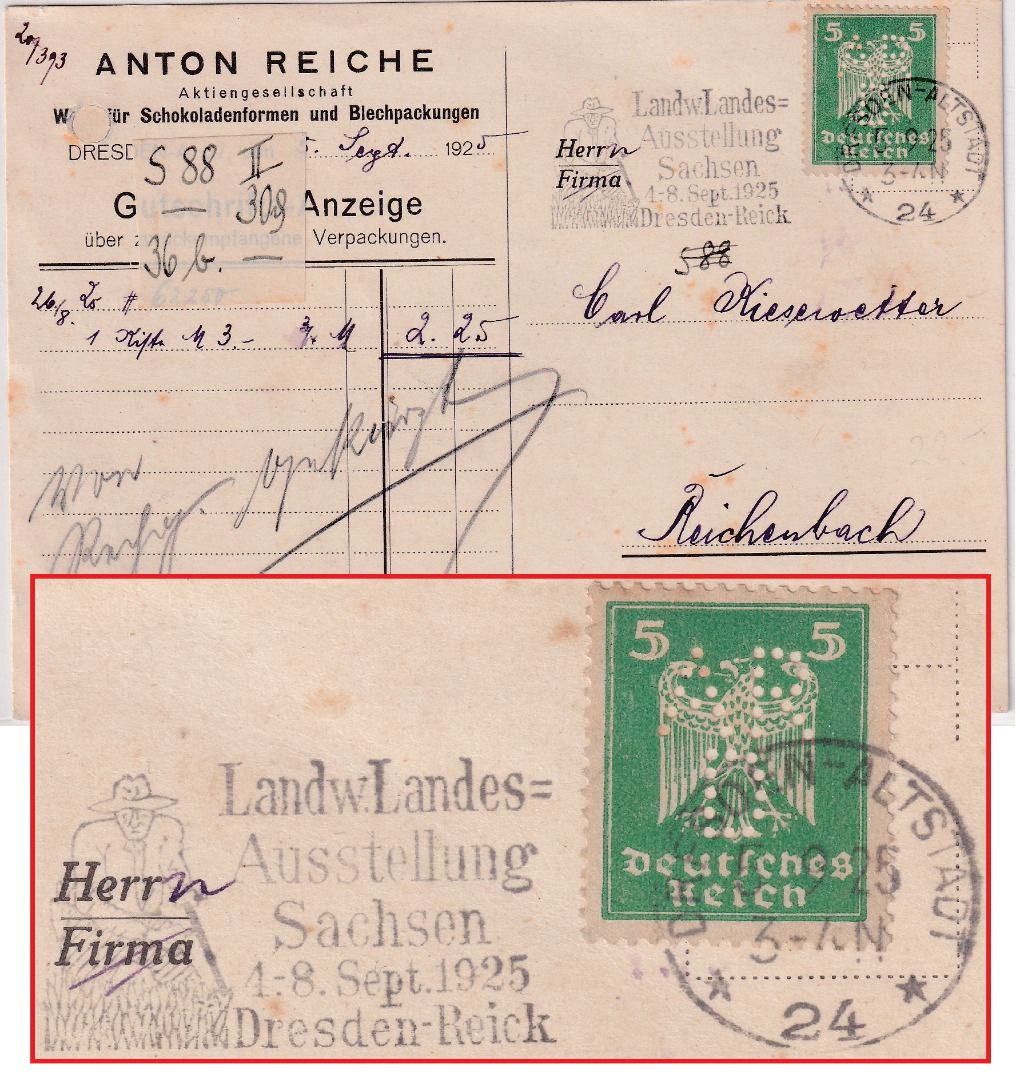 20/393
ANTON REICHE
Aktiengesellschaft
W für Schokoladenformen und Blechpackungen
DRESD 5. Sept. 1925
S 88 II
G — 309 Anzeige
über z Verpackungen.
36 b. —
62250
26/8.
1 Kiste M 3.- ¾ M 2.25
Von
Rechg. gekürzt
5 5
Deutsches
Reich
DRESDEN-ALTSTADT
5.9.25
3-4N
* 24 *
Landw. Landes=
Ausstellung
Sachsen
4.-8. Sept. 1925
Dresden-Reick
Herrn
Firma
S 88
Carl Kiesewetter
Reichenbach
5 5
Deutsches
Reich
DRESDEN-ALTSTADT
5.9.25
3-4N
* 24 *
Landw. Landes=
Ausstellung
Sachsen
4.-8. Sept. 1925
Dresden-Reick
Herrn
Firma